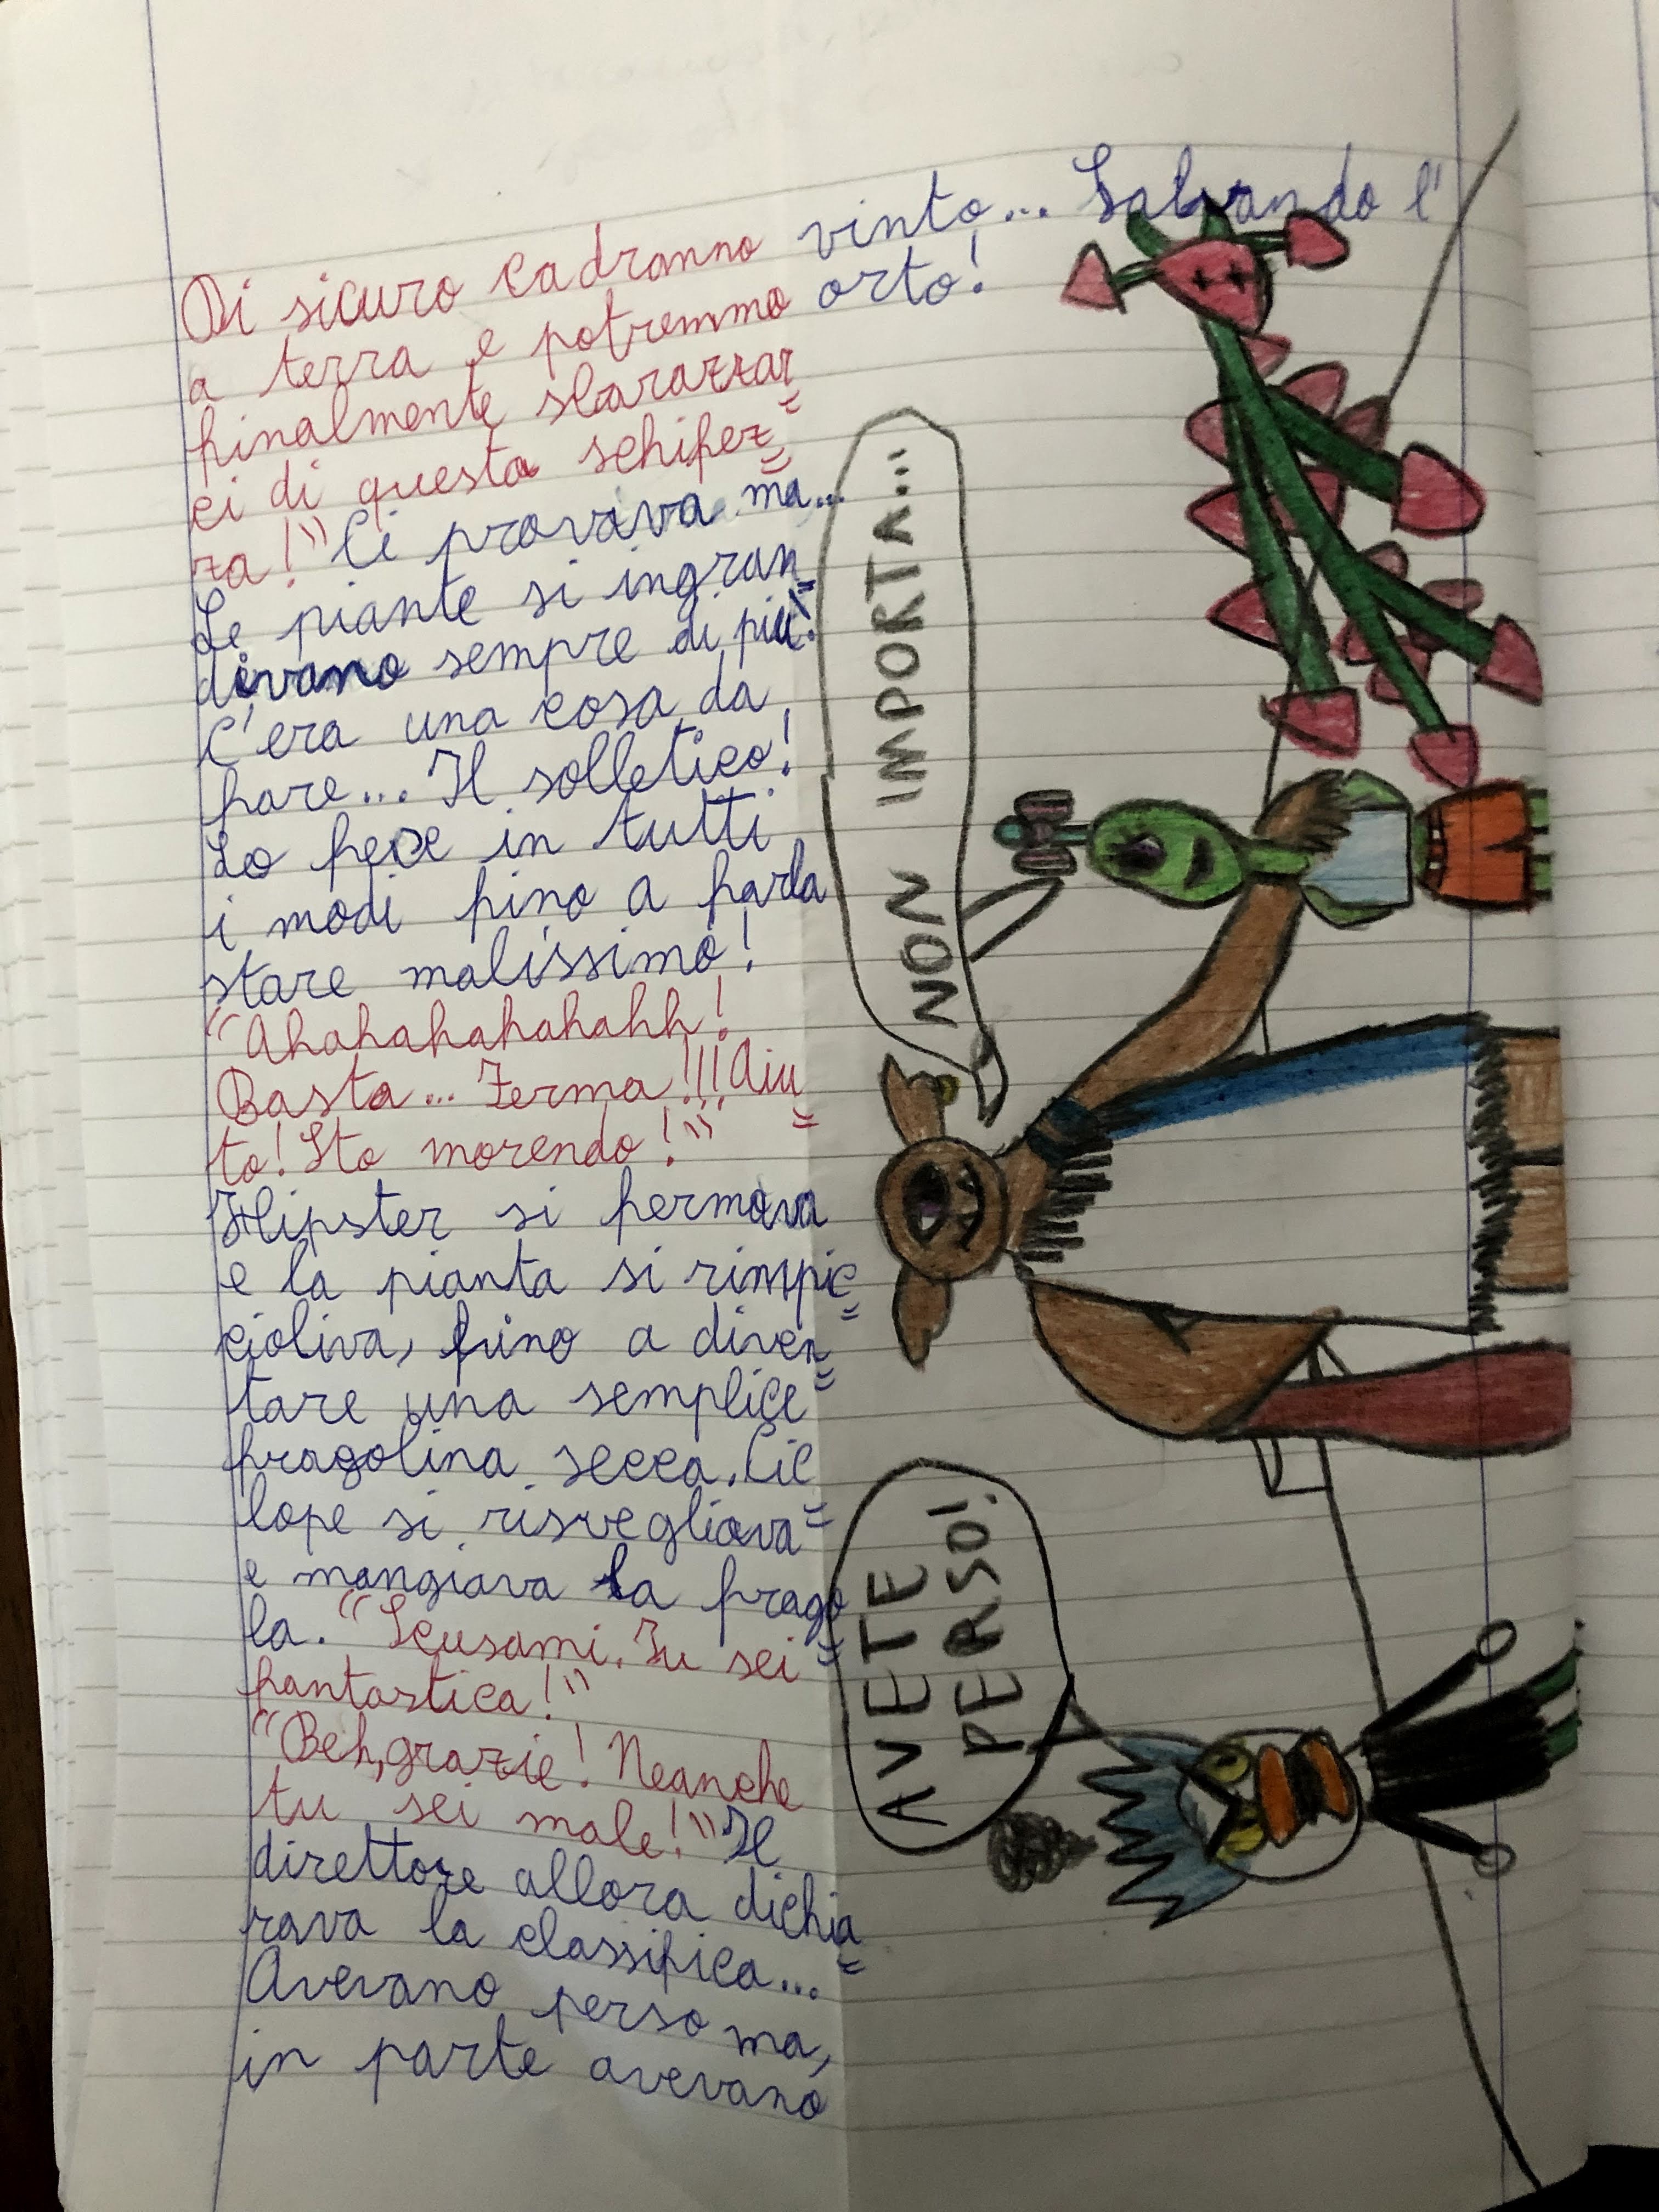 Di sicuro cadranno
a terra e potremmo
finalmente sbarazzar
ci di questa schifez
za!" Ci provava ma...
Le piante si ingran
divano sempre di più!
C'era una cosa da
fare... Il solletico!
Lo fece in tutti
i modi fino a farla
stare malissimo!
"Ahahahahahahh!
Basta... Ferma!!! Aiu
to! Sto morendo!"
Hipster si fermava
e la pianta si rimpic
cioliva, fino a diven
tare una semplice
fragolina secca. Cic
lope si risvegliava
e mangiava la frago
la. "Scusami. Tu sei
fantastica!"
"Beh, grazie! Neanche
tu sei male!" Il
direttore allora dichia
rava la classifica...
Avevano perso ma,
in parte avevano
vinto... Salvando l'
orto!
NON IMPORTA...
AVETE
PERSO!